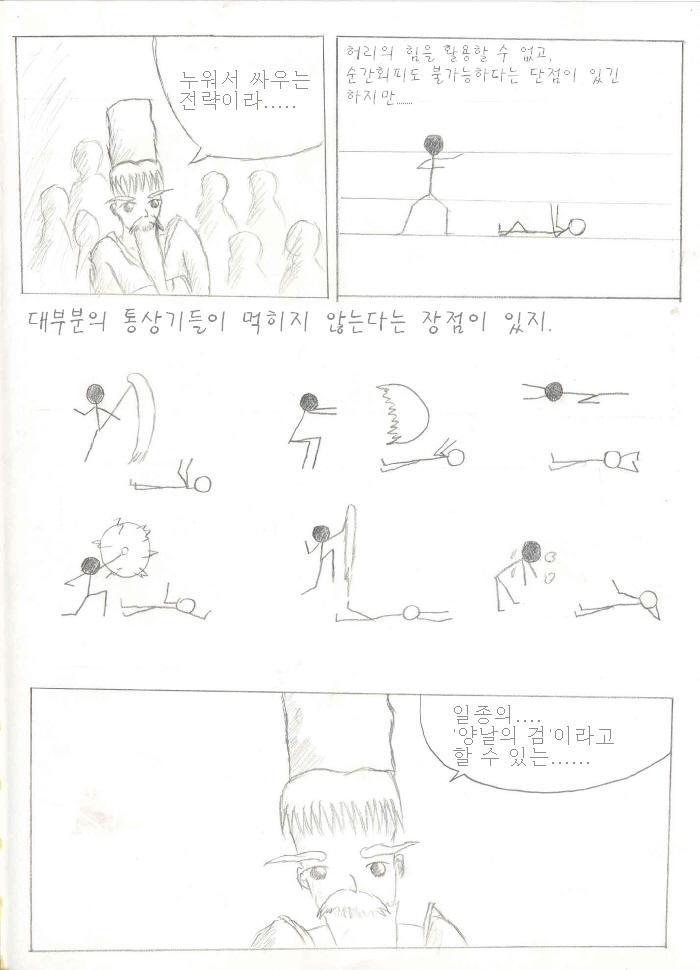 누워서 싸우는
전략이라.....
허리의 힘을 활용할 수 없고,
순간회피도 불가능하다는 단점이 있긴
하지만.......
대부분의 통상기들이 먹히지 않는다는 장점이 있지.
일종의....
'양날의 검'이라고
할 수 있는......